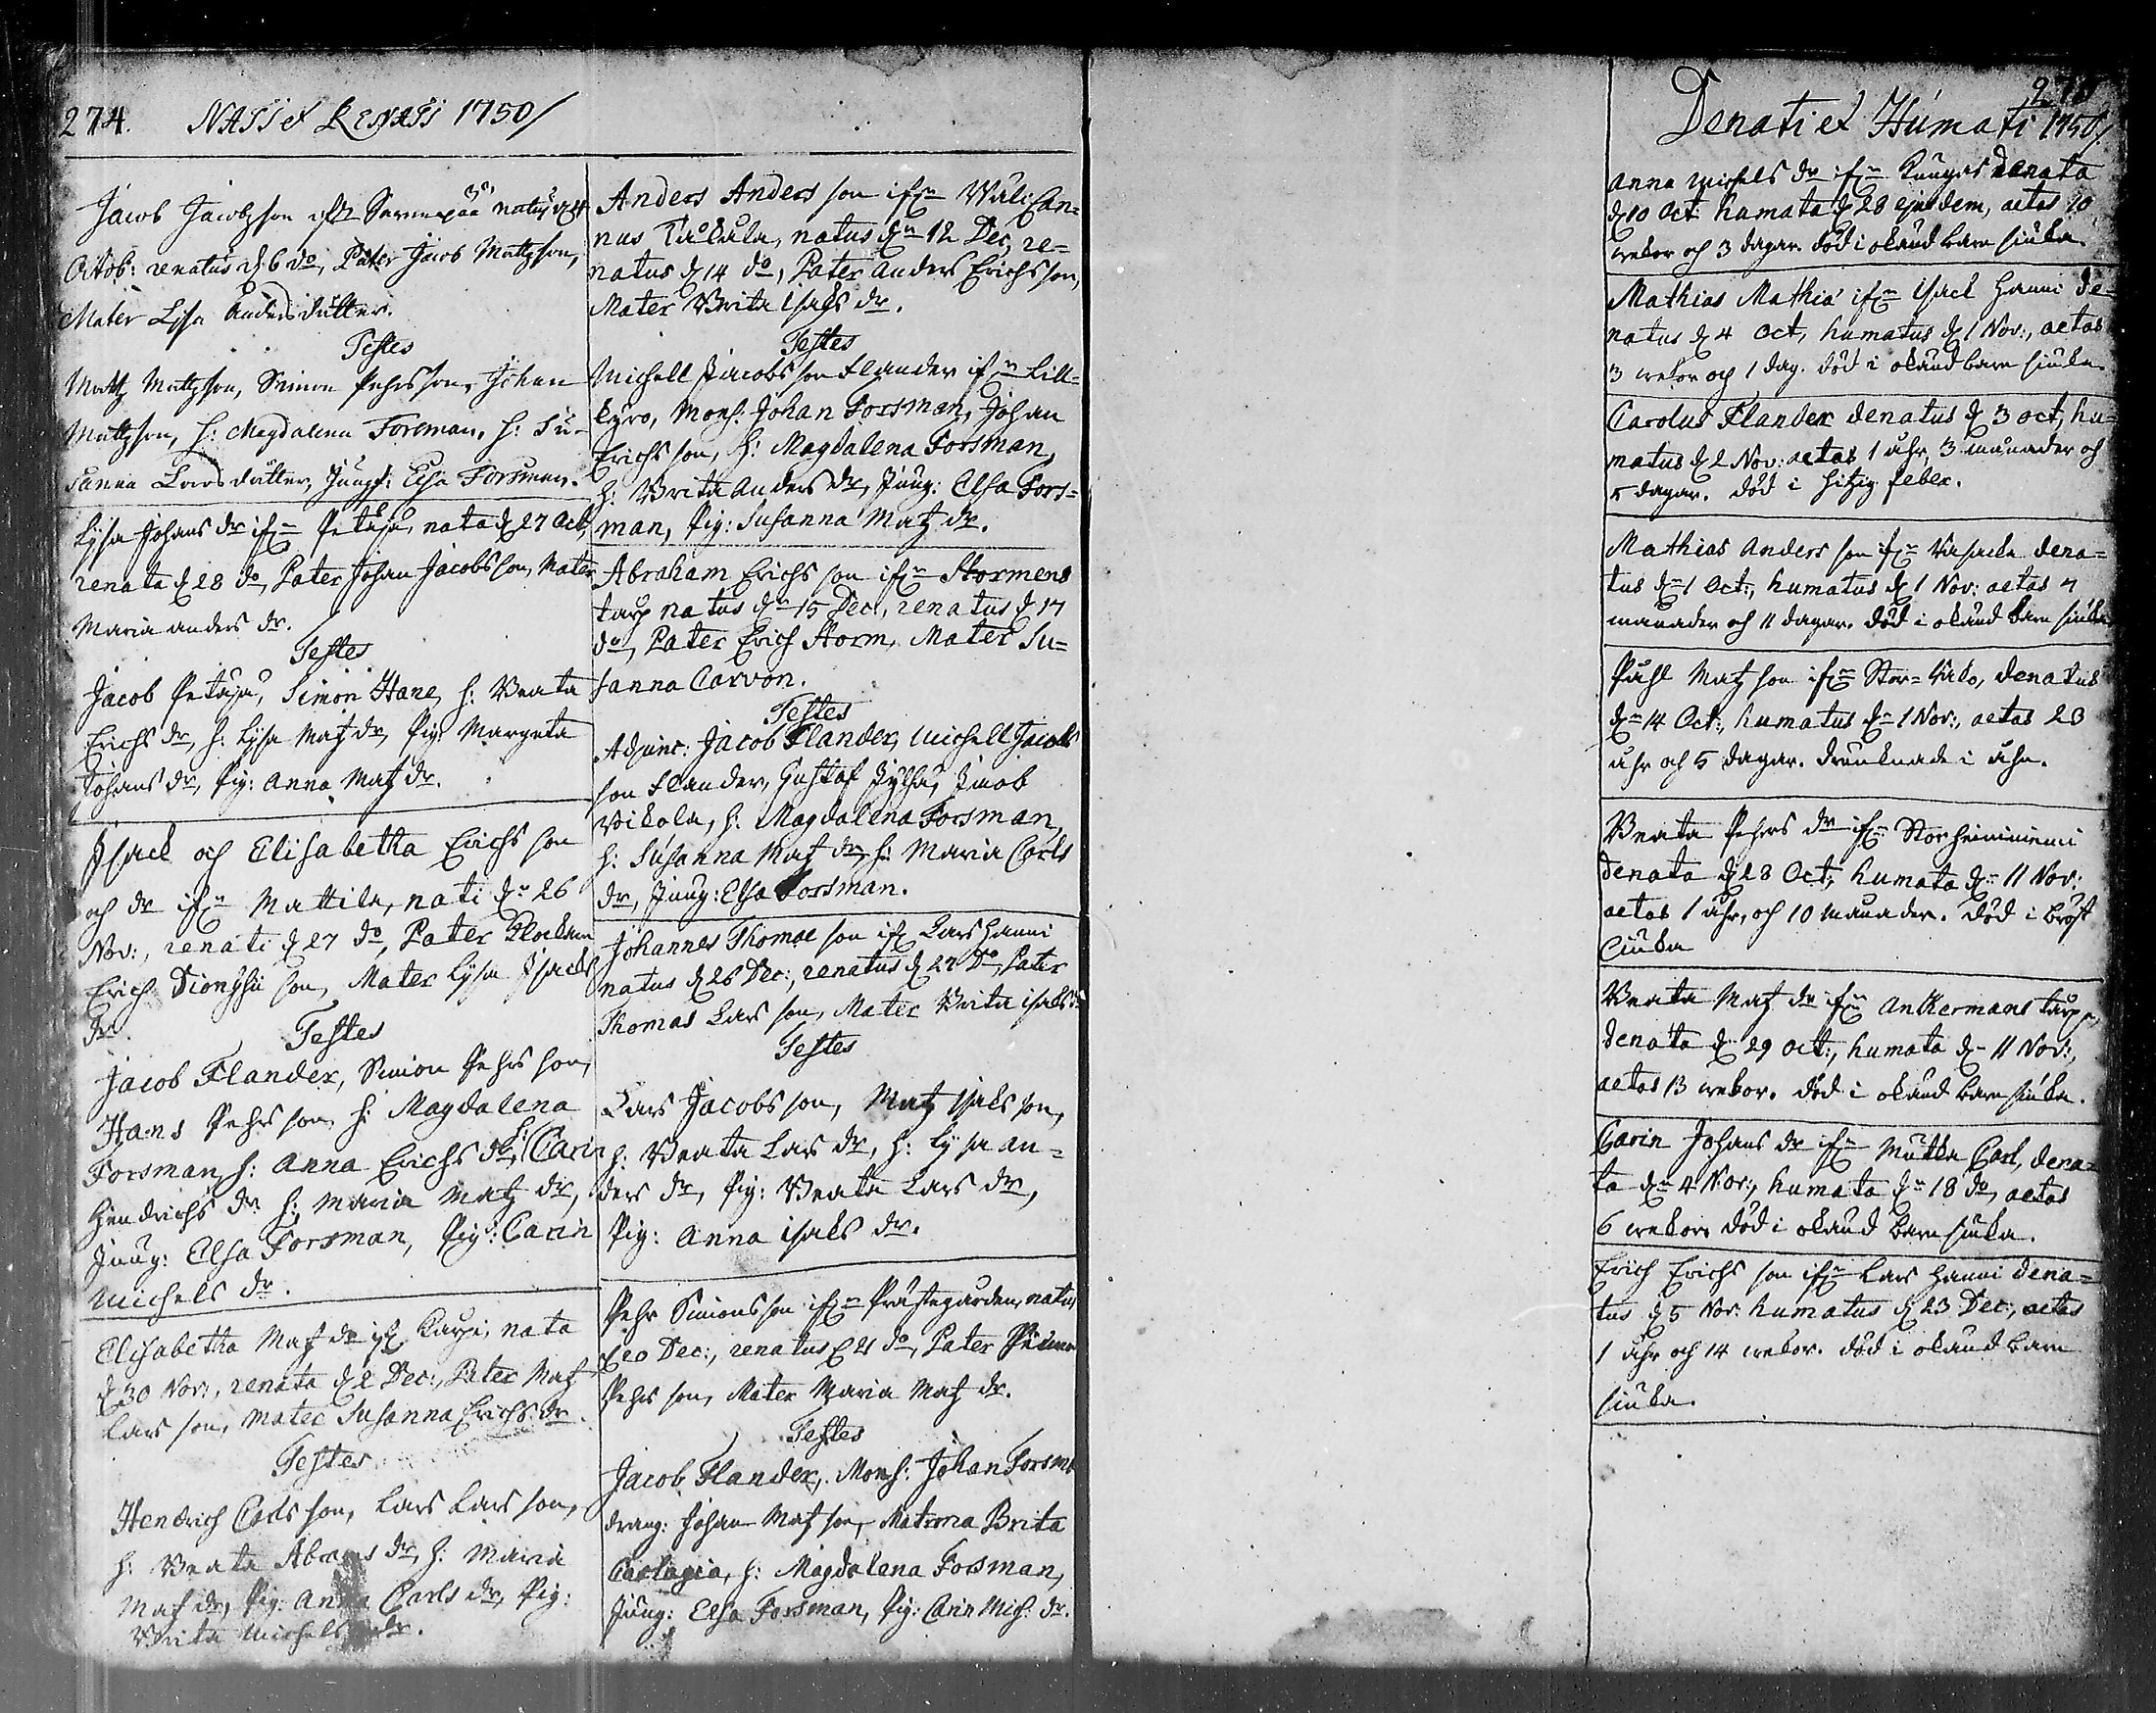 274. NATI et RENATI 1750/
Jacob Jacobsson ifrån Sarvepää natus d 4
Octob: renatus d. 6 do, Pater Jacob Mattsson,
Mater Lisa Andersdutter.
Testes
Matts Mattsson, Simon Pehrsson, Johan
Mattsson, h: Magdalena Forsman, h: Su-
sanna Larsdutter, Jungf: Elsa Forsman.
Lisa Johans dr ifrn Petäjä, nata d 27 Oct,
renata d 28 do, Pater Johan Jacobsson, Mater
Maria Anders dr.
Testes
Jacob Petäjä, Simon Hane, h: Beata
Erichs dr, h: Lisa Matz dr, Pig: Margeta
Johans dr, Pig: Anna Matz dr.
Isack och Elisabetha Erichs son
och dr ifrn Mattila, nati dn 26
Nov:, renati d 27 do, Pater Klockaren
Erich Dionysii son, Mater Lisa Isacks
dr.
Testes
Jacob Flander, Simon Pehrs son,
Hans Pehrs son, h: Magdalena
Forsman, h: Anna Erichs dr, h: Carin
Hendrichs dr h: Maria Matz dr,
Jung: Elsa Forsman, Pig: Carin
Michels dr.
Elisabetha Matz dr ifr Karpi, nata
d 30 Nov:, renata d 2 Dec:, Pater Matz
Lars son, Mater Susanna Erichs dr.
Testes
Hendrich Carls son, Lars Lars son,
h: Beata Abrams dr, h: Maria
Matz dr, Pig: Anna Carls dr, Pig:
Brita Michels dr.
Anders Anders son ifrn Wälican=
nus Takala, natus dn 12 Dec, re=
natus d 14 do, Pater Anders Erichsson,
Mater Brita Isaks dr.
Testes
Michell Jacobs son Flander ifrn Lill=
kyro, Mons: Johan Forsman, Johan
Erichs son, h: Magdalena Forsman,
h: Brita Anders dr, Jung: Elsa Fors=
man, Pig: Susanna Matz dr.
Abraham Erichs son ifrn Stormens
tarp natus dn 15 Dec:, renatus d 17
do, Pater Erich Storm, Mater Su=
sanna Carvon.
Testes
Adjunc: Jacob Flander, Michell Jacobs
son Flander, Gustaf Jylhä, Jacob
Wikola, h: Magdalena Forsman,
h: Susanna Matz dr, h: Maria Carls
dr, Jung: Elsa Forsman.
Johannes Thomae son ifr Lars Hanni
natus d 26 Dec:, renatus d 27 Do, Pater
Thomas Lars son, Mater Brita Isaks dr
Testes
Lars Jacobs son, Matz Isaks son,
h: Beata Lars dr, h: Lisa An=
ders dr, Pig: Beata Lars dr,
Pig: Anna Isaks dr.
Pehr Simonsson ifrn Prästegården, natus
d 20 Dec:, renatus d 21 do, Pater Simon
Pehrs son, Mater Maria Matz dr.
Testes
Jacob Flander, Mons: Johan Forsm
dräng: Johan Matz son, Matrona Brita
h: Magdalena Forsman,
Jung: Elsa Forsman, Pig: Carin Mich: dr.
275
Denati et Humati 1750/.
Anna Michels dr ifrn Kungas denata
d 10 Oct: humata d 28 ejusdem, aetas 20
wekor och 3 dagar. död i okänd barn siuka.
Mathias Mathiæ ifrn Isack Hanni de=
natus d 4 Oct, humatus d 1 Nov:, aetas
3 wekor och 1 dag. död i okänd barn siuka.
Carolus Flander denatus d 3 oct, hu=
matus d 2 Nov: aetas 1 åhr, 3 månader och
5 dagar. död i hitzig feber.
Mathias Anders son ifrn denа=
tus dn 1 Oct:, humatus d 1 Nov: aetas 7
månader och 11 dagar. död i okänd barn siuka
Påhl Matz son ifrn Stor=, denatus
dn 14 Oct:, humatus dn 1 Nov:, aetas 23
åhr och 5 dagar. drunknade i åhn.
Beata Pehrs dr ifrn Storheiniemi
denata d 28 Oct:, humata dn 11 Nov:
aetas 1 åhr, och 10 månader. död i bröst
Ciuka
Beata Matz dr ifrn Ankermans tarp,
denata dn 29 oct:, humata dn 11 Nov:,
aetas 13 wekor. död i okänd barn siuka.
Carin Johans dr ifrn Mutka Carl, dena=
ta dn 4 Nov:, humata dn 18 do, aetas
6 wekor. död i okänd barn siuka.
Erich Erichs son ifrn Lars Hanni dena=
tus d 5 Nov: humatus d 23 Dec:, aetas
1 åhr och 14 wekor. död i okänd barn
siuka.